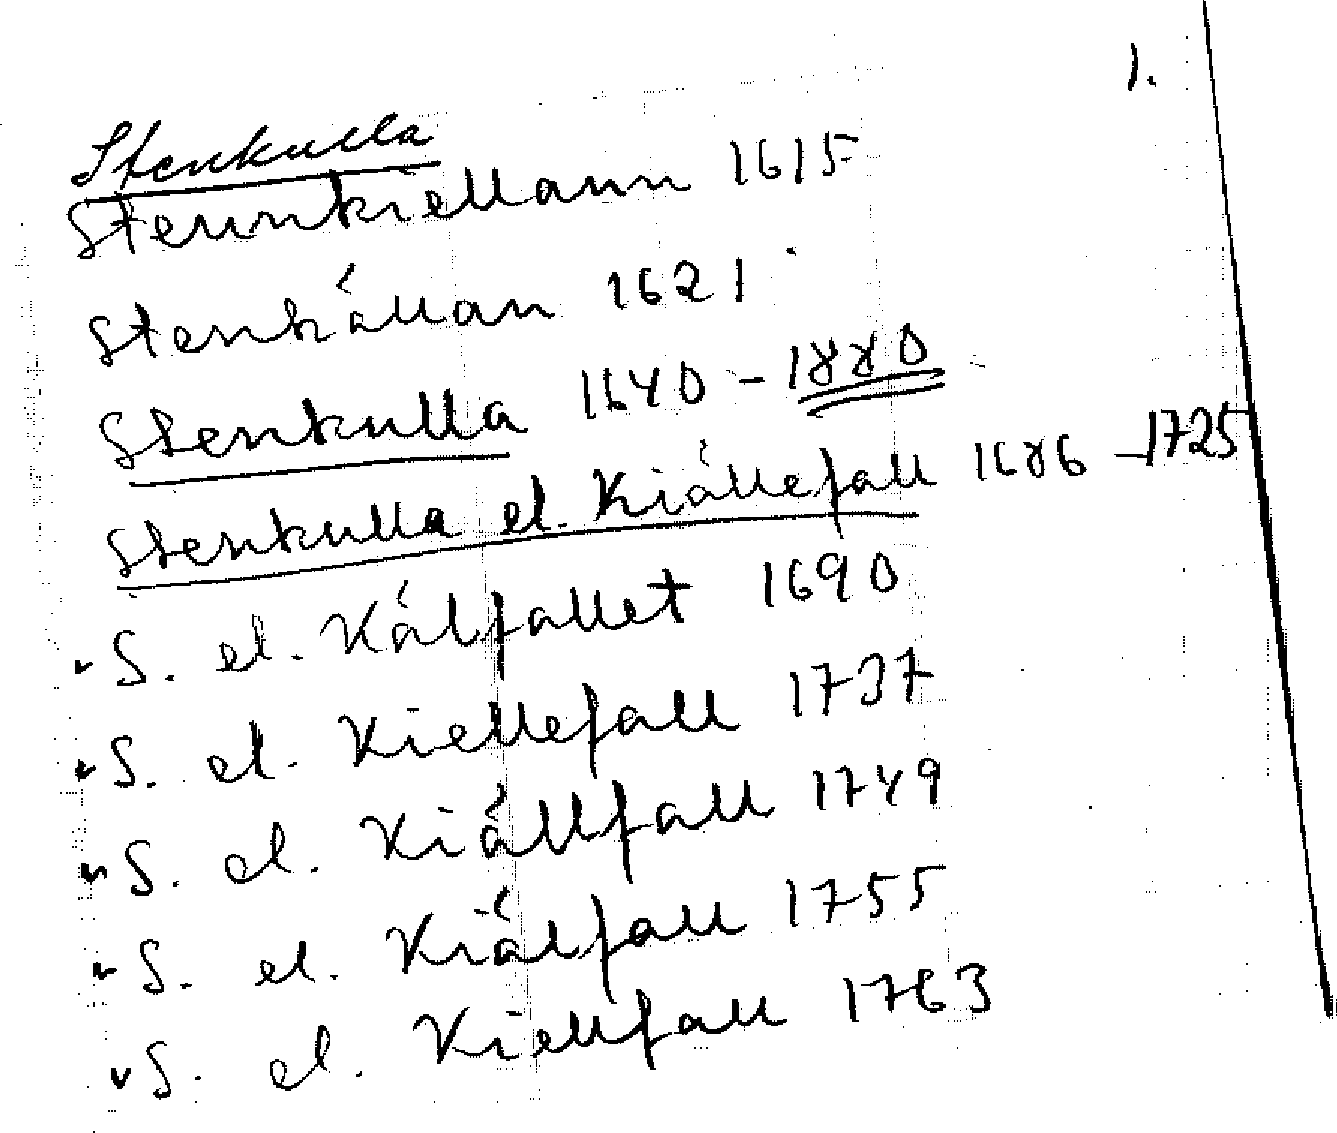 1.
Stenkulla
Stennkiellann 1615
Stenkällan 1621
Stenkulla 1640 - 1880
Stenkulla el. Kiällefall 1686 - 1725
S. el. Kälfallet 1690
S. el. Kiellefall 1737
S. el. Kiällfall 1749
S. el. Kiälfall 1755
S. el. Kiellfall 1763